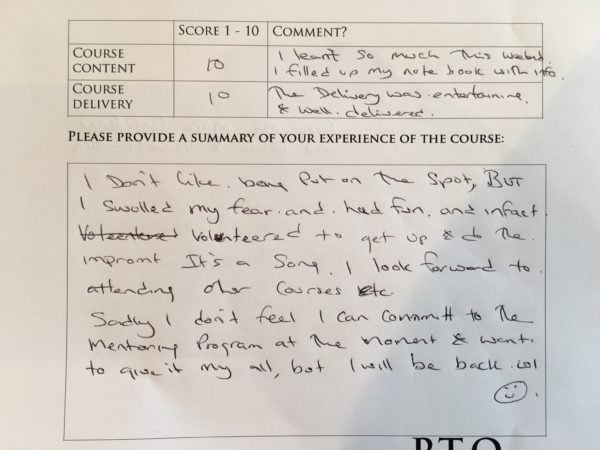 SCORE 1 - 10 COMMENT?
COURSE CONTENT 10 I learnt so much this weekend.
I filled up my note book with info.
COURSE DELIVERY 10 The Delivery was entertaining
& well delivered.
PLEASE PROVIDE A SUMMARY OF YOUR EXPERIENCE OF THE COURSE:
I Don't like being Put on The Spot, BUT
I Swolled my fear and had fun, and infact
Volenteered to get up & do The
impromt It's a Song. I look forward to
attending other Courses etc.
Sadly I don't feel I can committ to The
Mentoring Program at The moment & want
to give it my all, but I will be back. lol
P.T.O